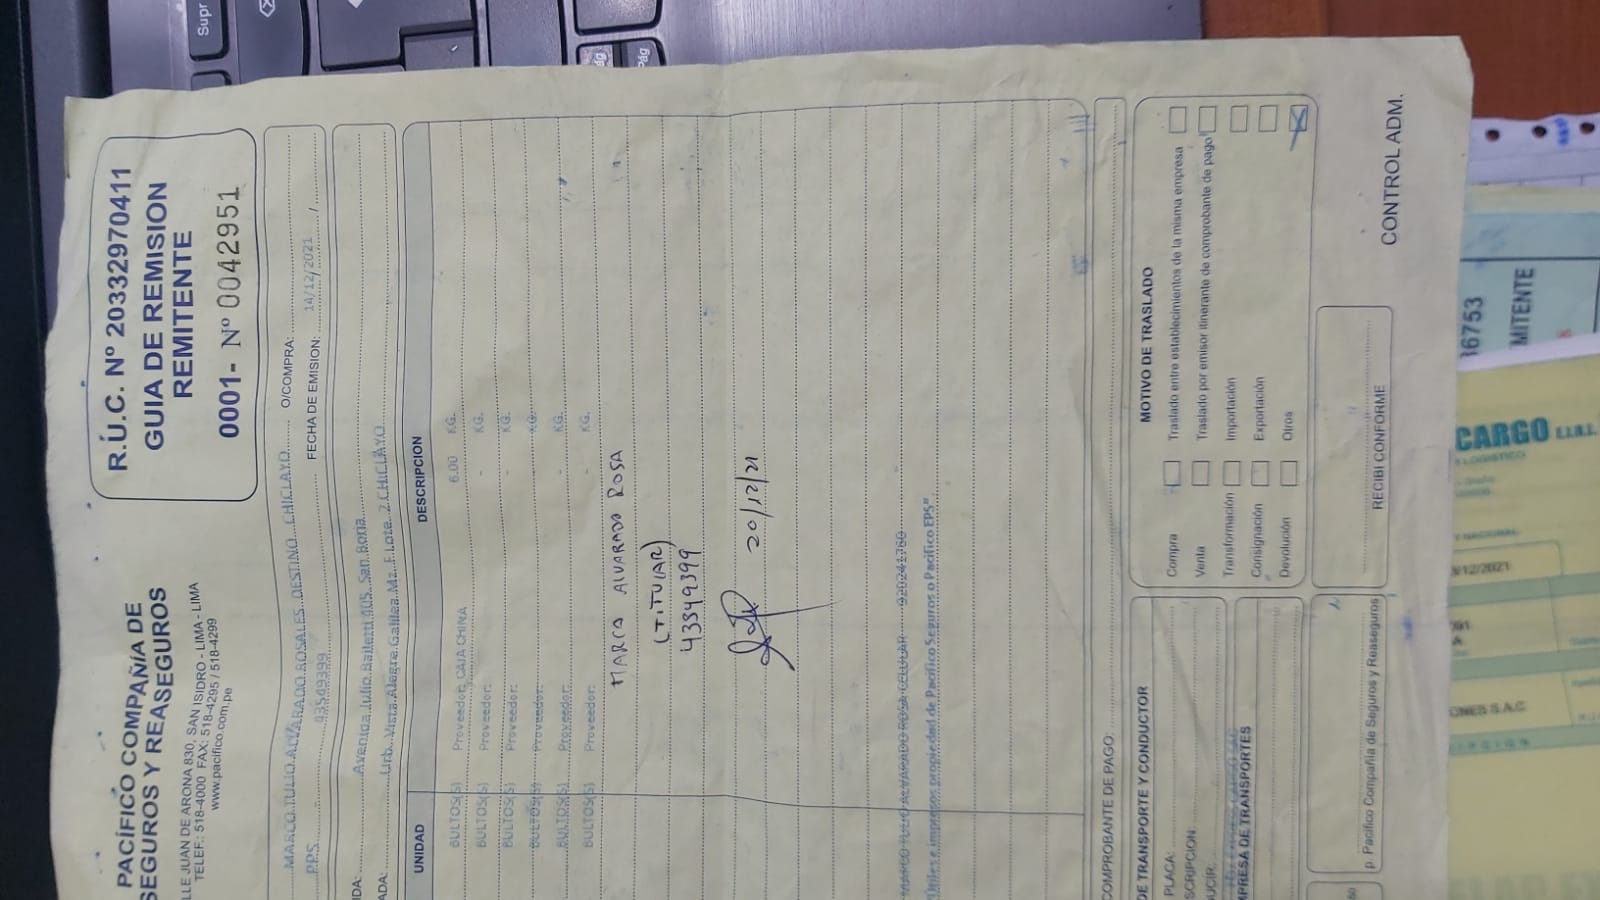 PACÍFICO COMPAÑÍA DE
SEGUROS Y REASEGUROS
LLE JUAN DE ARONA 830, SAN ISIDRO - LIMA - LIMA
TELEF.: 518-4000 FAX: 518-4295 / 518-4299
www.pacifico.com.pe
R.U.C. Nº 20332970411
GUIA DE REMISION
REMITENTE
0001- Nº 0042951
MARCO TULIO ALVARADO ROSALES DESTINO CHICLAYO O/COMPRA:
PPS 43549399 FECHA DE EMISION: 14/12/2021 /
IDA: Avenida Julio Bailetti 405 San Borja
ADA: Urb. Vista Alegre Galilea Mz. F Lote. 2 CHICLAYO
UNIDAD DESCRIPCION
BULTOS(S) Proveedor: CAJA CHINA 6.00 KG.
BULTOS(S) Proveedor: - KG.
BULTOS(S) Proveedor: - KG.
BULTOS(S) Proveedor: - KG.
BULTOS(S) Proveedor: - KG.
BULTOS(S) Proveedor: - KG.
MARCO ALVARADO ROSA
(TITULAR)
43549399
20/12/21
MARCO TULIO ALVARADO ROSA CELULAR
"Útiles e impresos propiedad de Pacifico Seguros o Pacifico EPS"
COMPROBANTE DE PAGO:
DE TRANSPORTE Y CONDUCTOR
PLACA:
SCRIPCION:
UCIR:
MPRESA DE TRANSPORTES
MOTIVO DE TRASLADO
Compra Traslado entre establecimientos de la misma empresa
Venta Traslado por emisor itinerante de comprobante de pago
Transformación Importación
Consignación Exportación
Devolución Otros
p. Pacífico Compañía de Seguros y Reaseguros
RECIBI CONFORME
CONTROL ADM.
Supr
Pág
36753
MITENTE
CARGO E.I.R.L.
LOGISTICO
NACIONAL
/12/2021
ONES S.A.C